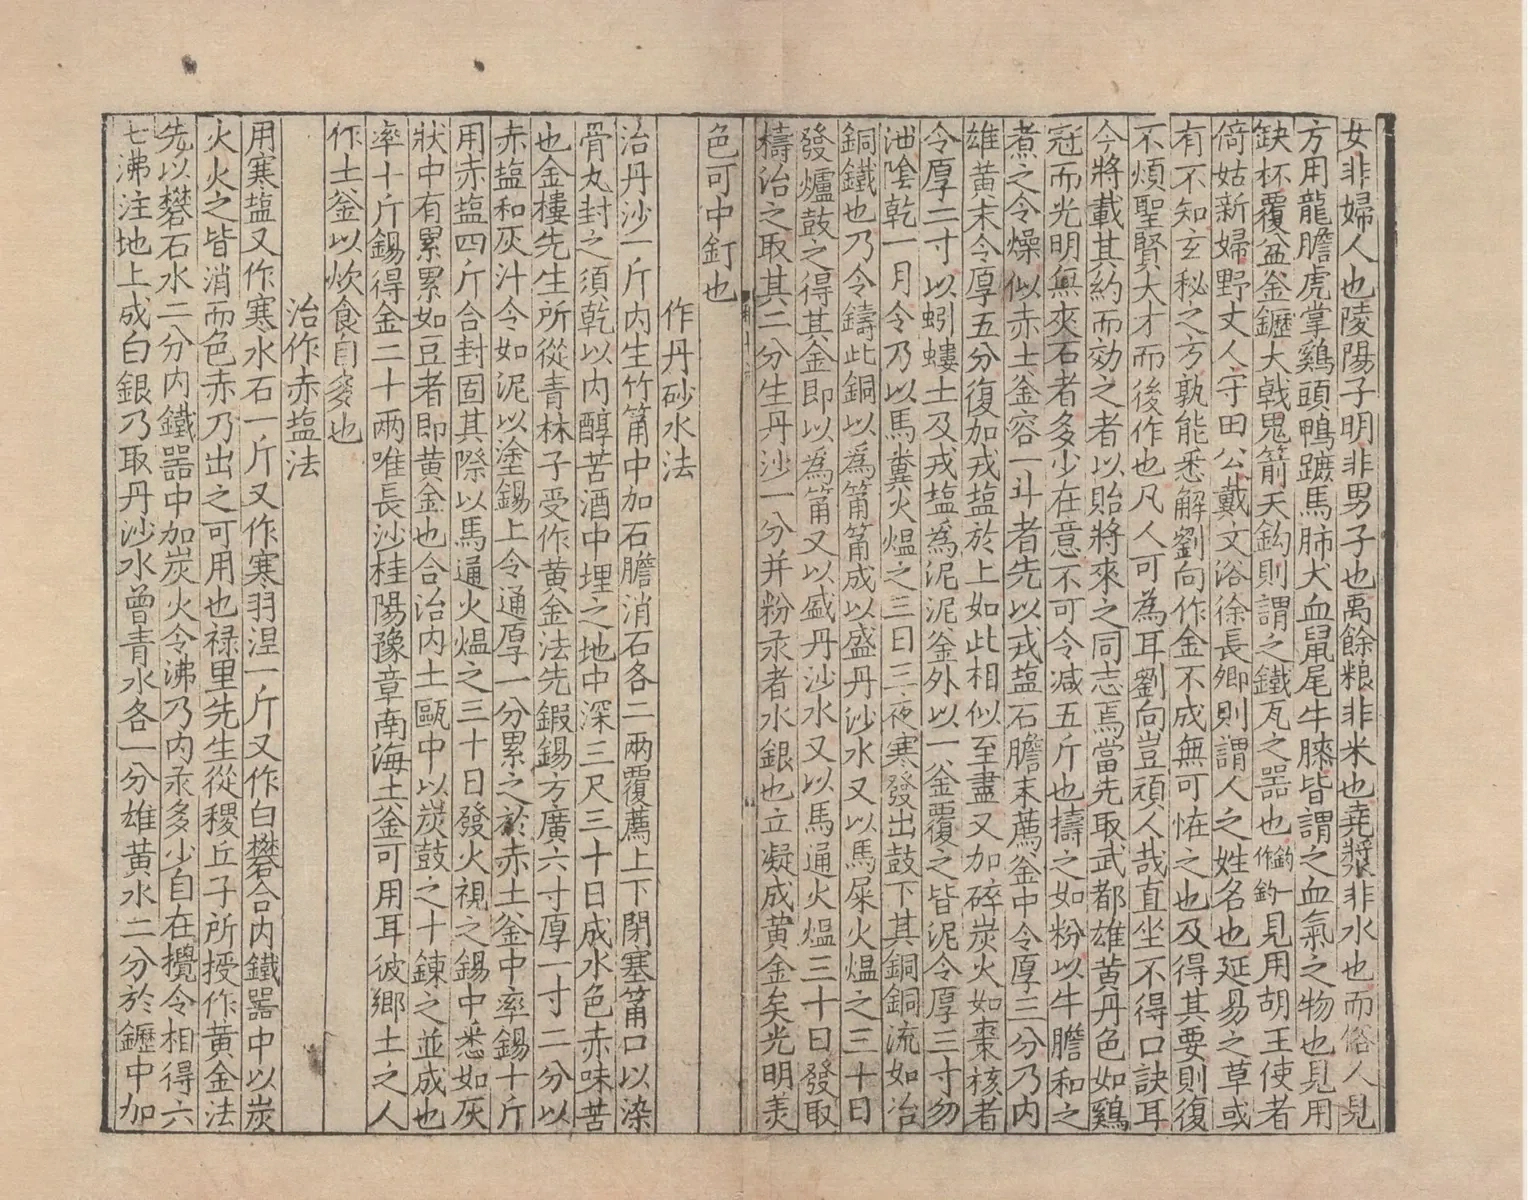 女非婦人也陵陽子明非男子也禹餘粮非米也堯漿非水也而俗人見
方用龍膽虎掌鷄頭鴨蹠馬肺犬血鼠尾牛膝皆謂之血氣之物也見用
缺杯覆盆釜鑩大戟鬼箭天鈎則謂之鐵瓦之器也鈎一作釣見用胡王使者
倚姑新婦野丈人守田公戴文浴徐長卿則謂人之姓名也延易之草或
有不知玄秘之方孰能悉解劉向作金不成無可恠之也及得其要則復
不煩聖賢大才而後作也凡人可為耳劉向豈頑人哉直坐不得口訣耳
今將載其約而効之者以貽將來之同志焉當先取武都雄黄丹色如鷄
冠而光明無夾石者多少在意不可令减五斤也擣之如粉以牛膽和之
煮之令燥似赤土釜容一斗者先以戎塩石膽末薦釜中令厚三分乃内
雄黄末令厚五分復加戎塩於上如此相似至盡又加碎炭火如棗核者
令厚二寸以蚓螻土及戎塩為泥泥釜外以一釜覆之皆泥令厚三寸勿
泄陰乾一月令乃以馬糞火熅之三日三夜寒發出鼓下其銅銅流如冶
銅鐵也乃令鑄此銅以為筩筩成以盛丹沙水又以馬屎火熅之三十日
發爐鼓之得其金即以為筩又以盛丹沙水又以馬通火熅三十日發取
擣治之取其二分生丹沙一分并粉汞者水銀也立凝成黄金矣光明羙
色可中釘也
作丹砂水法
治丹沙一斤内生竹筩中加石膽消石各二兩覆薦上下閉塞筩口以染
骨丸封之須乾以内醇苦酒中埋之地中深三尺三十日成水色赤味苦
也金樓先生所從青林子受作黄金法先鍜錫方廣六寸厚一寸二分以
赤塩和灰汁令如泥以塗錫上令通厚一分累之於赤土釜中率錫十斤
用赤塩四斤合封固其際以馬通火熅之三十日發火視之錫中悉如灰
狀中有累累如豆者即黄金也合治内土甌中以炭鼓之十鍊之並成也
率十斤錫得金二十兩唯長沙桂陽豫章南海土釜可用耳彼鄉土之人
作土釜以炊食自多也
治作赤塩法
用寒塩又作寒水石一斤又作寒羽涅一斤又作白礬合内鐵器中以炭
火火之皆消而色赤乃出之可用也禄里先生從稷丘子所授作黄金法
先以礬石水二分内鐵器中加炭火令沸乃内汞多少自在攪令相得六
七沸注地上成白銀乃取丹沙水曾青水各一分雄黄水二分於鑩中加